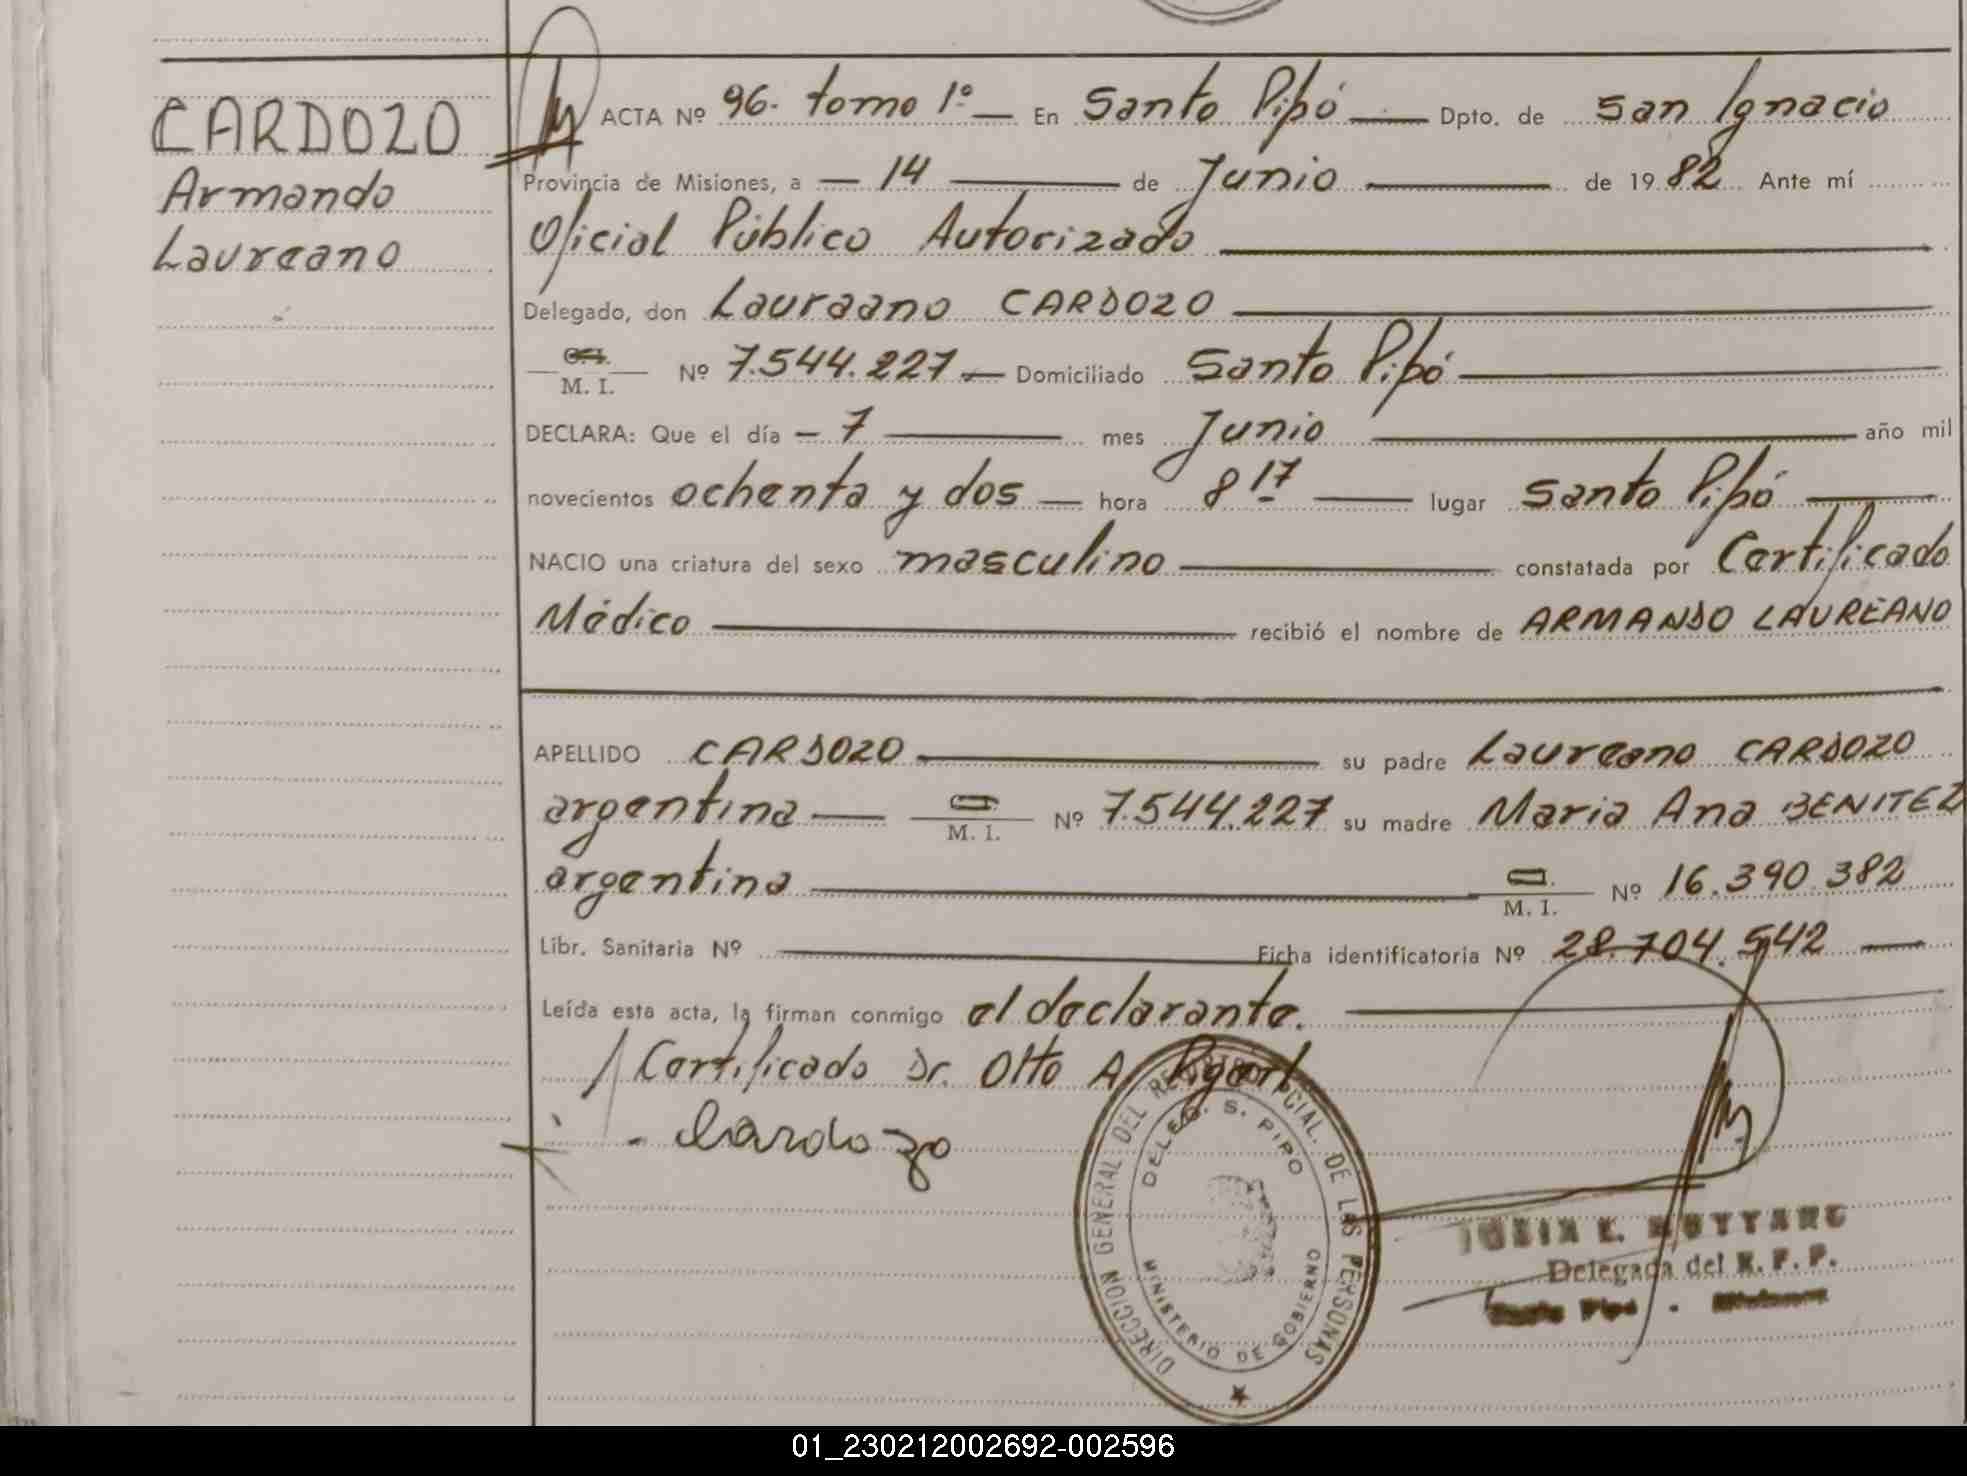 CARDOZO
Armando
Laureano
ACTA Nº 96. tomo 1º En Santo Pipó Dpto. de San Ignacio
Provincia de Misiones, a 14 de Junio de 1982 Ante mí
Oficial Público Autorizado
Delegado, don Lauraano CARDOZO
C.I.
M. I. Nº 7.544.227 Domiciliado Santo Pipó
DECLARA: Que el día 7 mes Junio año mil
novecientos ochenta y dos hora 8 17 lugar Santo Pipó
NACIO una criatura del sexo masculino constatada por Certificado
Médico recibió el nombre de ARMANDO LAUREANO
APELLIDO CARDOZO su padre Laureano CARDOZO
argentina M. I. Nº 7.544.227 su madre Maria Ana BENITEZ
argentina M. I. Nº 16.390.382
Libr. Sanitaria Nº Ficha identificatoria Nº 28.704.542
Leída esta acta, la firman conmigo el declarante.
Certificado Dr. Otto A.
Cardozo
DIRECCION GENERAL DEL REGISTRO PCIAL. DE LAS PERSONAS
DELEG. S. PIPO
MINISTERIO DE GOBIERNO
Delegada del R. P. P.
01_230212002692-002596